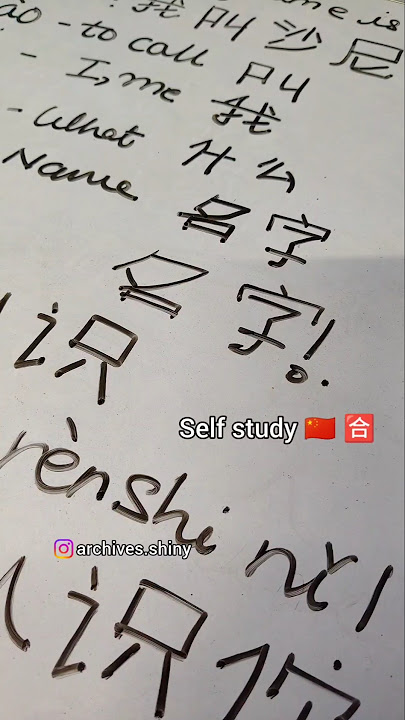 me is
我叫沙尼
ǎo - to call 叫
- I, me 我
- What 什么
Name 名字
名字!
识
rènshi nǐ!
Self study 🇨🇳 🈴
archives.shiny
识你